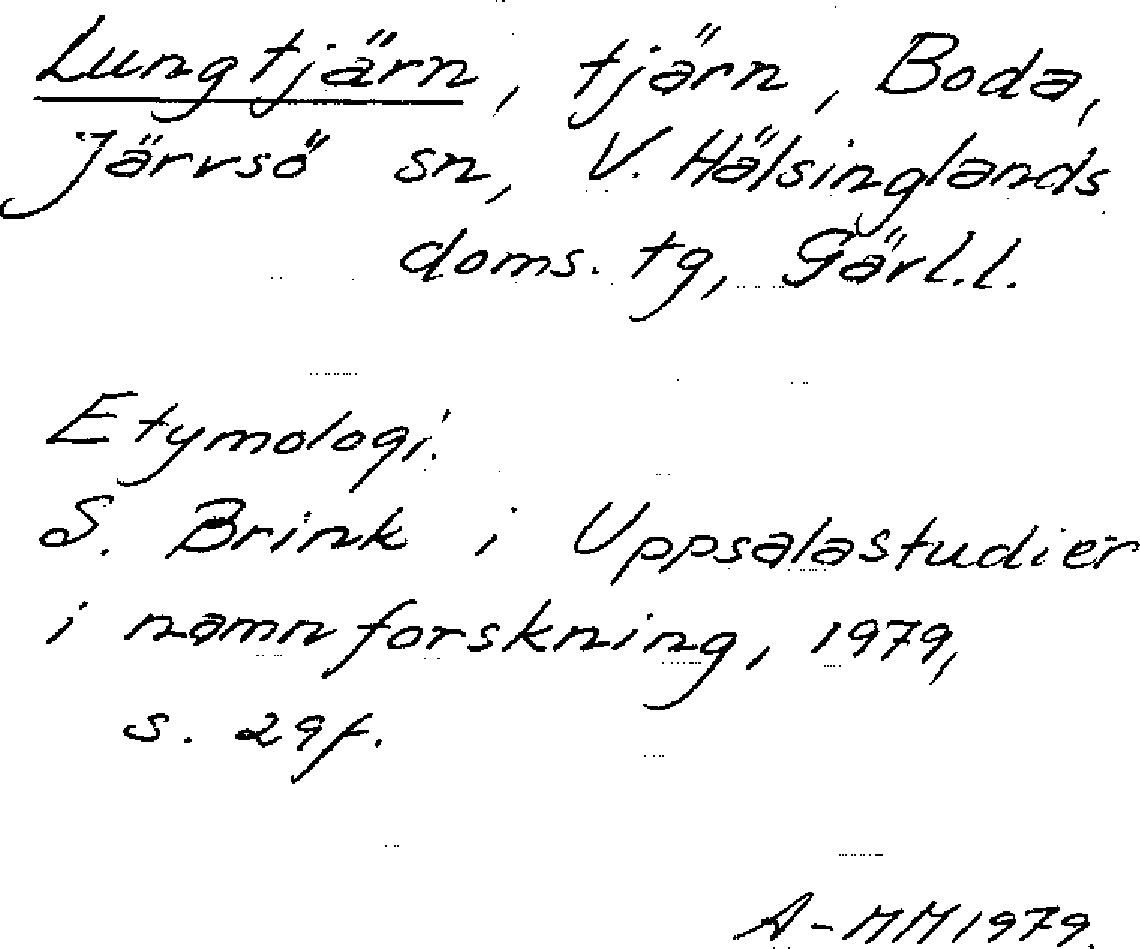 Lungtjärn, tjärn, Boda,
Järvsö sn, V. Hälsinglands
doms. tg, Gävl.l.
Etymologi:
S. Brink i Uppsalastudier
i namnforskning, 1979,
s. 29f.
A-MM 1979.